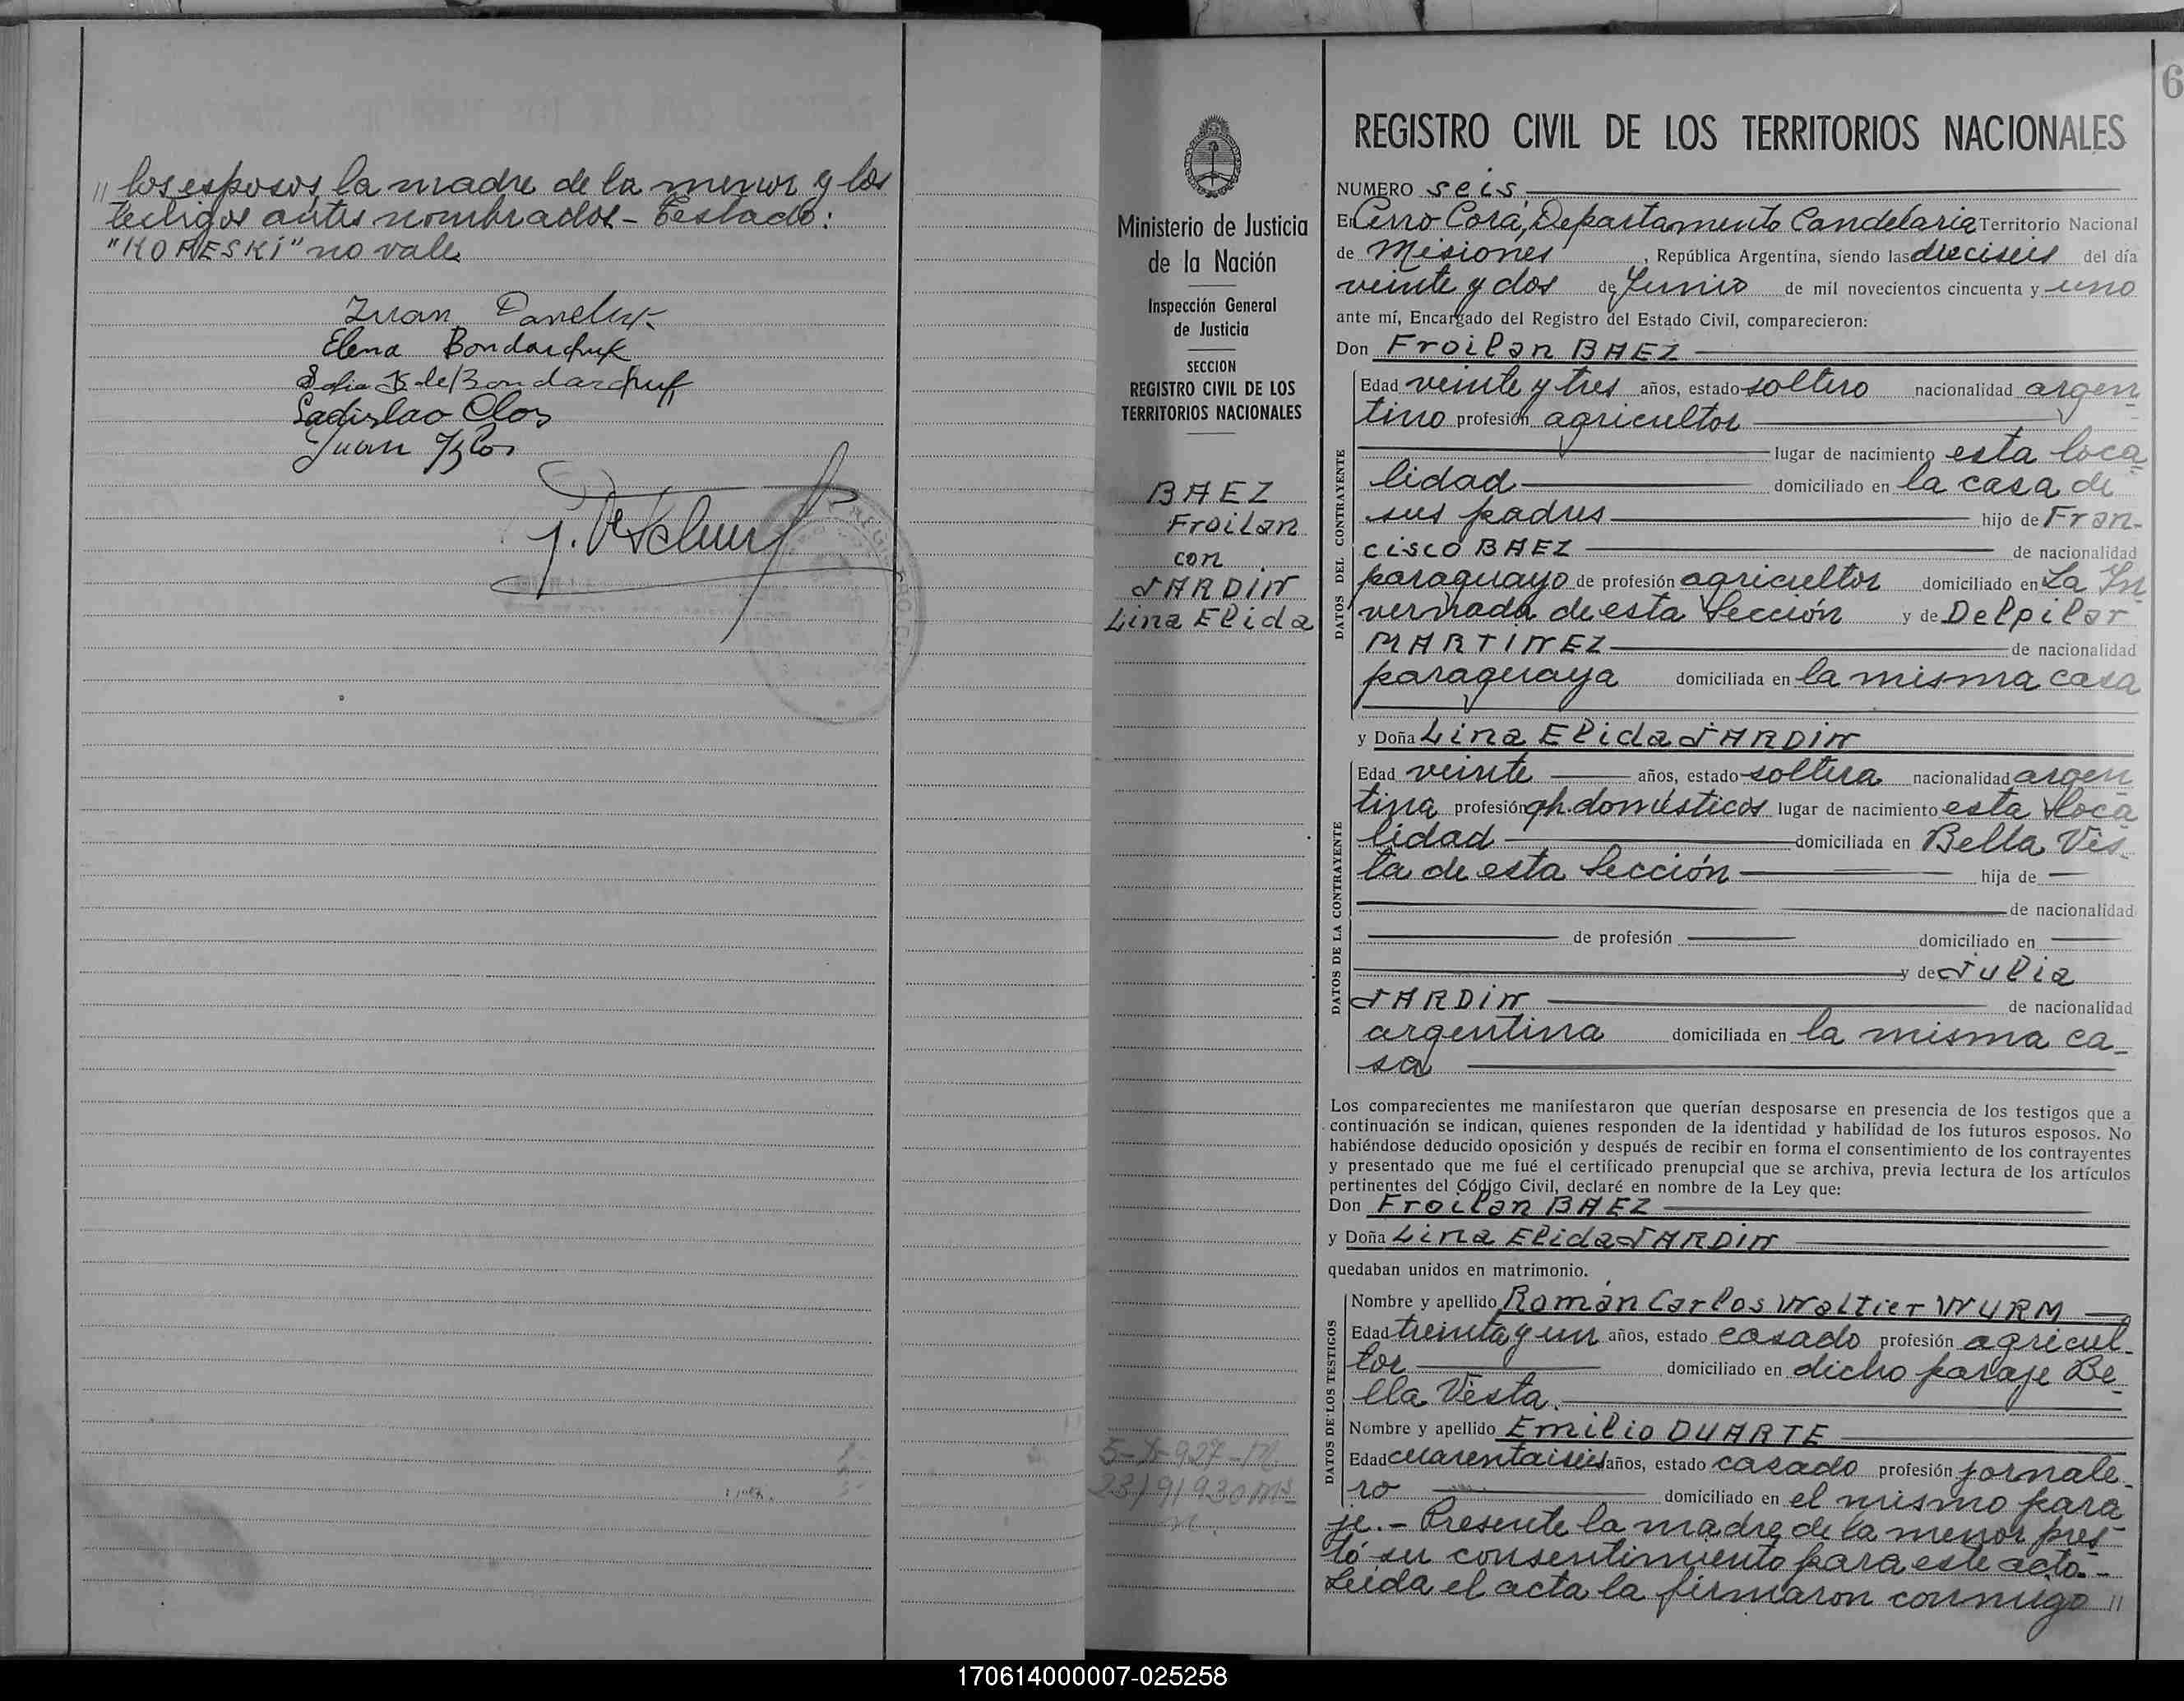 " los esposos, la madre de la menor y los
testigos antes nombrados - Testado:
"KORESKI" no vale
Juan
Elena Bondarchuk
Sofia K de Bondarchuk
Ladislao Clos
Juan Klos
6
Ministerio de Justicia
de la Nación
Inspección General
de Justicia
SECCION
REGISTRO CIVIL DE LOS
TERRITORIOS NACIONALES
BAEZ
Froilan
con
JARDIN
Lina Elida
23/9/930
REGISTRO CIVIL DE LOS TERRITORIOS NACIONALES
NUMERO seis
En Cerro Corá, Departamento Candelaria Territorio Nacional
de Misiones, República Argentina, siendo las dieciseis del día
veinte y dos de Junio de mil novecientos cincuenta y uno
ante mí, Encargado del Registro del Estado Civil, comparecieron:
Don Froilan BAEZ
DATOS DEL CONTRAYENTE
Edad veinte y tres años, estado soltero nacionalidad argen-
tino profesión agricultor
lugar de nacimiento esta loca-
lidad domiciliado en la casa de
sus padres hijo de Fran-
cisco BAEZ de nacionalidad
paraguayo de profesión agricultor domiciliado en La In-
vernada de esta Sección y de Delpilar
MARTINEZ de nacionalidad
paraguaya domiciliada en la misma casa
y Doña Lina Elida JARDIN
DATOS DE LA CONTRAYENTE
Edad veinte años, estado soltera nacionalidad argen
tina profesión qh. domésticos lugar de nacimiento esta loca
lidad domiciliada en Bella Vis-
ta de esta Sección hija de
de nacionalidad
de profesión domiciliado en
y de Julia
JARDIN de nacionalidad
argentina domiciliada en la misma ca-
sa
Los comparecientes me manifestaron que querían desposarse en presencia de los testigos que a
continuación se indican, quienes responden de la identidad y habilidad de los futuros esposos. No
habiéndose deducido oposición y después de recibir en forma el consentimiento de los contrayentes
y presentado que me fué el certificado prenupcial que se archiva, previa lectura de los artículos
pertinentes del Código Civil, declaré en nombre de la Ley que:
Don Froilan BAEZ
y Doña Lina Elida JARDIN
quedaban unidos en matrimonio.
DATOS DE LOS TESTIGOS
Nombre y apellido Roman Carlos Waltier WURM
Edad treinta y un años, estado casado profesión agricul-
tor domiciliado en dicho paraje Be-
lla Vista.
Nombre y apellido Emilio DUARTE
Edad cuarentaiseis años, estado casado profesión jornale-
ro domiciliado en el mismo para
je. - Presente la madre de la menor pres-
tó su consentimiento para este acto. -
Leida el acta la firmaron conmigo "
170614000007-025258